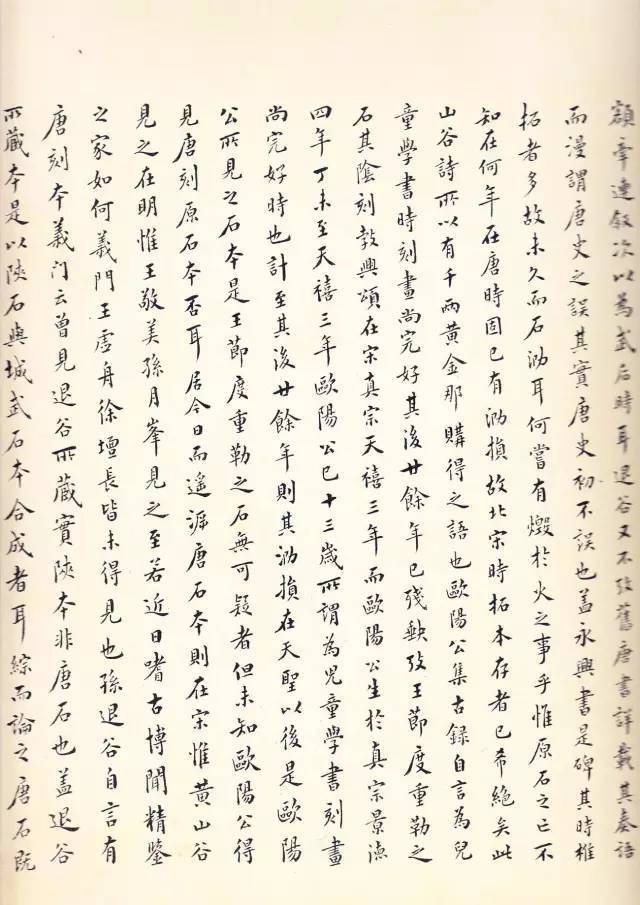 額牽連敘次以為武后時耳退谷又不攷舊唐書詳載其奏語
而漫謂唐史之誤其實唐史初不誤也蓋永興書是碑其時椎
拓者多故未久而石泐耳何嘗有燬於火之事乎惟原石之亡不
知在何年在唐時固已有泐損故北宋時拓本存者已希絕矣此
山谷詩所以有千兩黃金那購得之語也歐陽公集古錄自言為兒
童學書時刻畫尚完好其後廿餘年已殘缺攷王節度重勒之
石其陰刻敎興頌在宋真宗天禧三年而歐陽公生於真宗景德
四年丁未至天禧三年歐陽公已十三歲所謂為兒童學書刻畫
尚完好時也計至其後廿餘年則其泐損在天聖以後是歐陽
公所見之石本是王節度重勒之石無可疑者但未知歐陽公得
見唐刻原石本否耳居今日而遙溯唐石本則在宋惟黃山谷
見之在明惟王敬美孫月峯見之至若近日嗜古博聞精鑒
之家如何義門王虛舟徐壇長皆未得見也孫退谷自言有
唐刻本義门云曾見退谷所藏實陝本非唐石也蓋退谷
所藏本是以陝石與城武石本合成者耳綜而論之唐石既